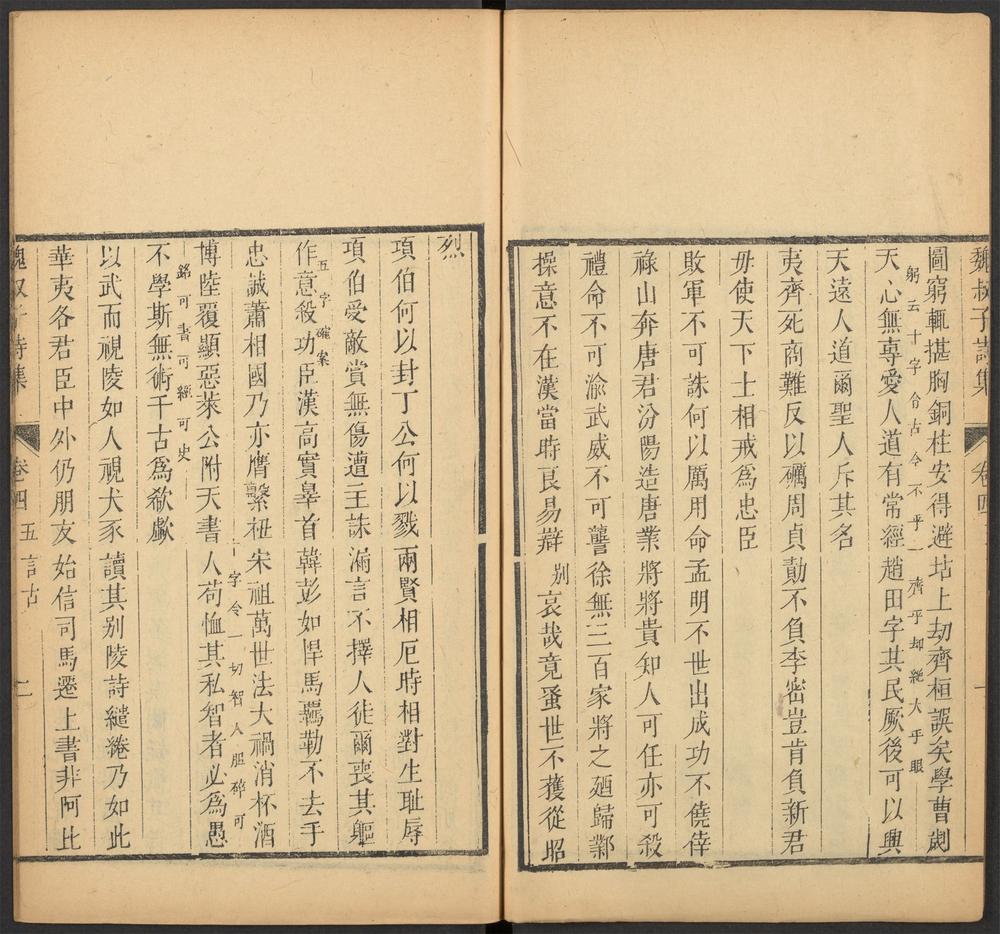 魏叔子詩集 卷四
圖窮輒揕胸銅柱安得避坫上劫齊桓誤矣學曹劌
躬云十字合古今不乎一齊乎却絕大乎眼
天心無專愛人道有常經趙田字其民厥後可以興
天遠人道爾聖人斥其名
夷齊死商難反以礪周貞勣不負李密豈肯負新君
毋使天下士相戒為忠臣
敗軍不可誅何以厲用命孟明不世出成功不僥倖
祿山奔唐君汾陽造唐業將將貴知人可任亦可殺
禮命不可渝武威不可讋徐無三百家將之廼歸鄴
操意不在漢當時良易辯別哀哉竟蚤世不獲從昭
烈
項伯何以封丁公何以戮兩賢相厄時相對生恥辱
項伯受敵賞無傷遭主誅漏言不擇人徒爾喪其軀
五字確案
作意殺功臣漢高實辠首韓彭如悍馬羈勒不去手
忠誠蕭相國乃亦膺繫杻宋祖萬世法大禍消杯酒
十字令一切智人胆碎可
博陸覆顯惡萊公附天書人苟恤其私智者必為愚
銘可書可經可史
不學斯無術千古為欷歔
以武而視陵如人視犬豕讀其別陵詩繾綣乃如此
華夷各君臣中外仍朋友始信司馬遷上書非阿比
魏叔子詩集 卷四 五言古 二